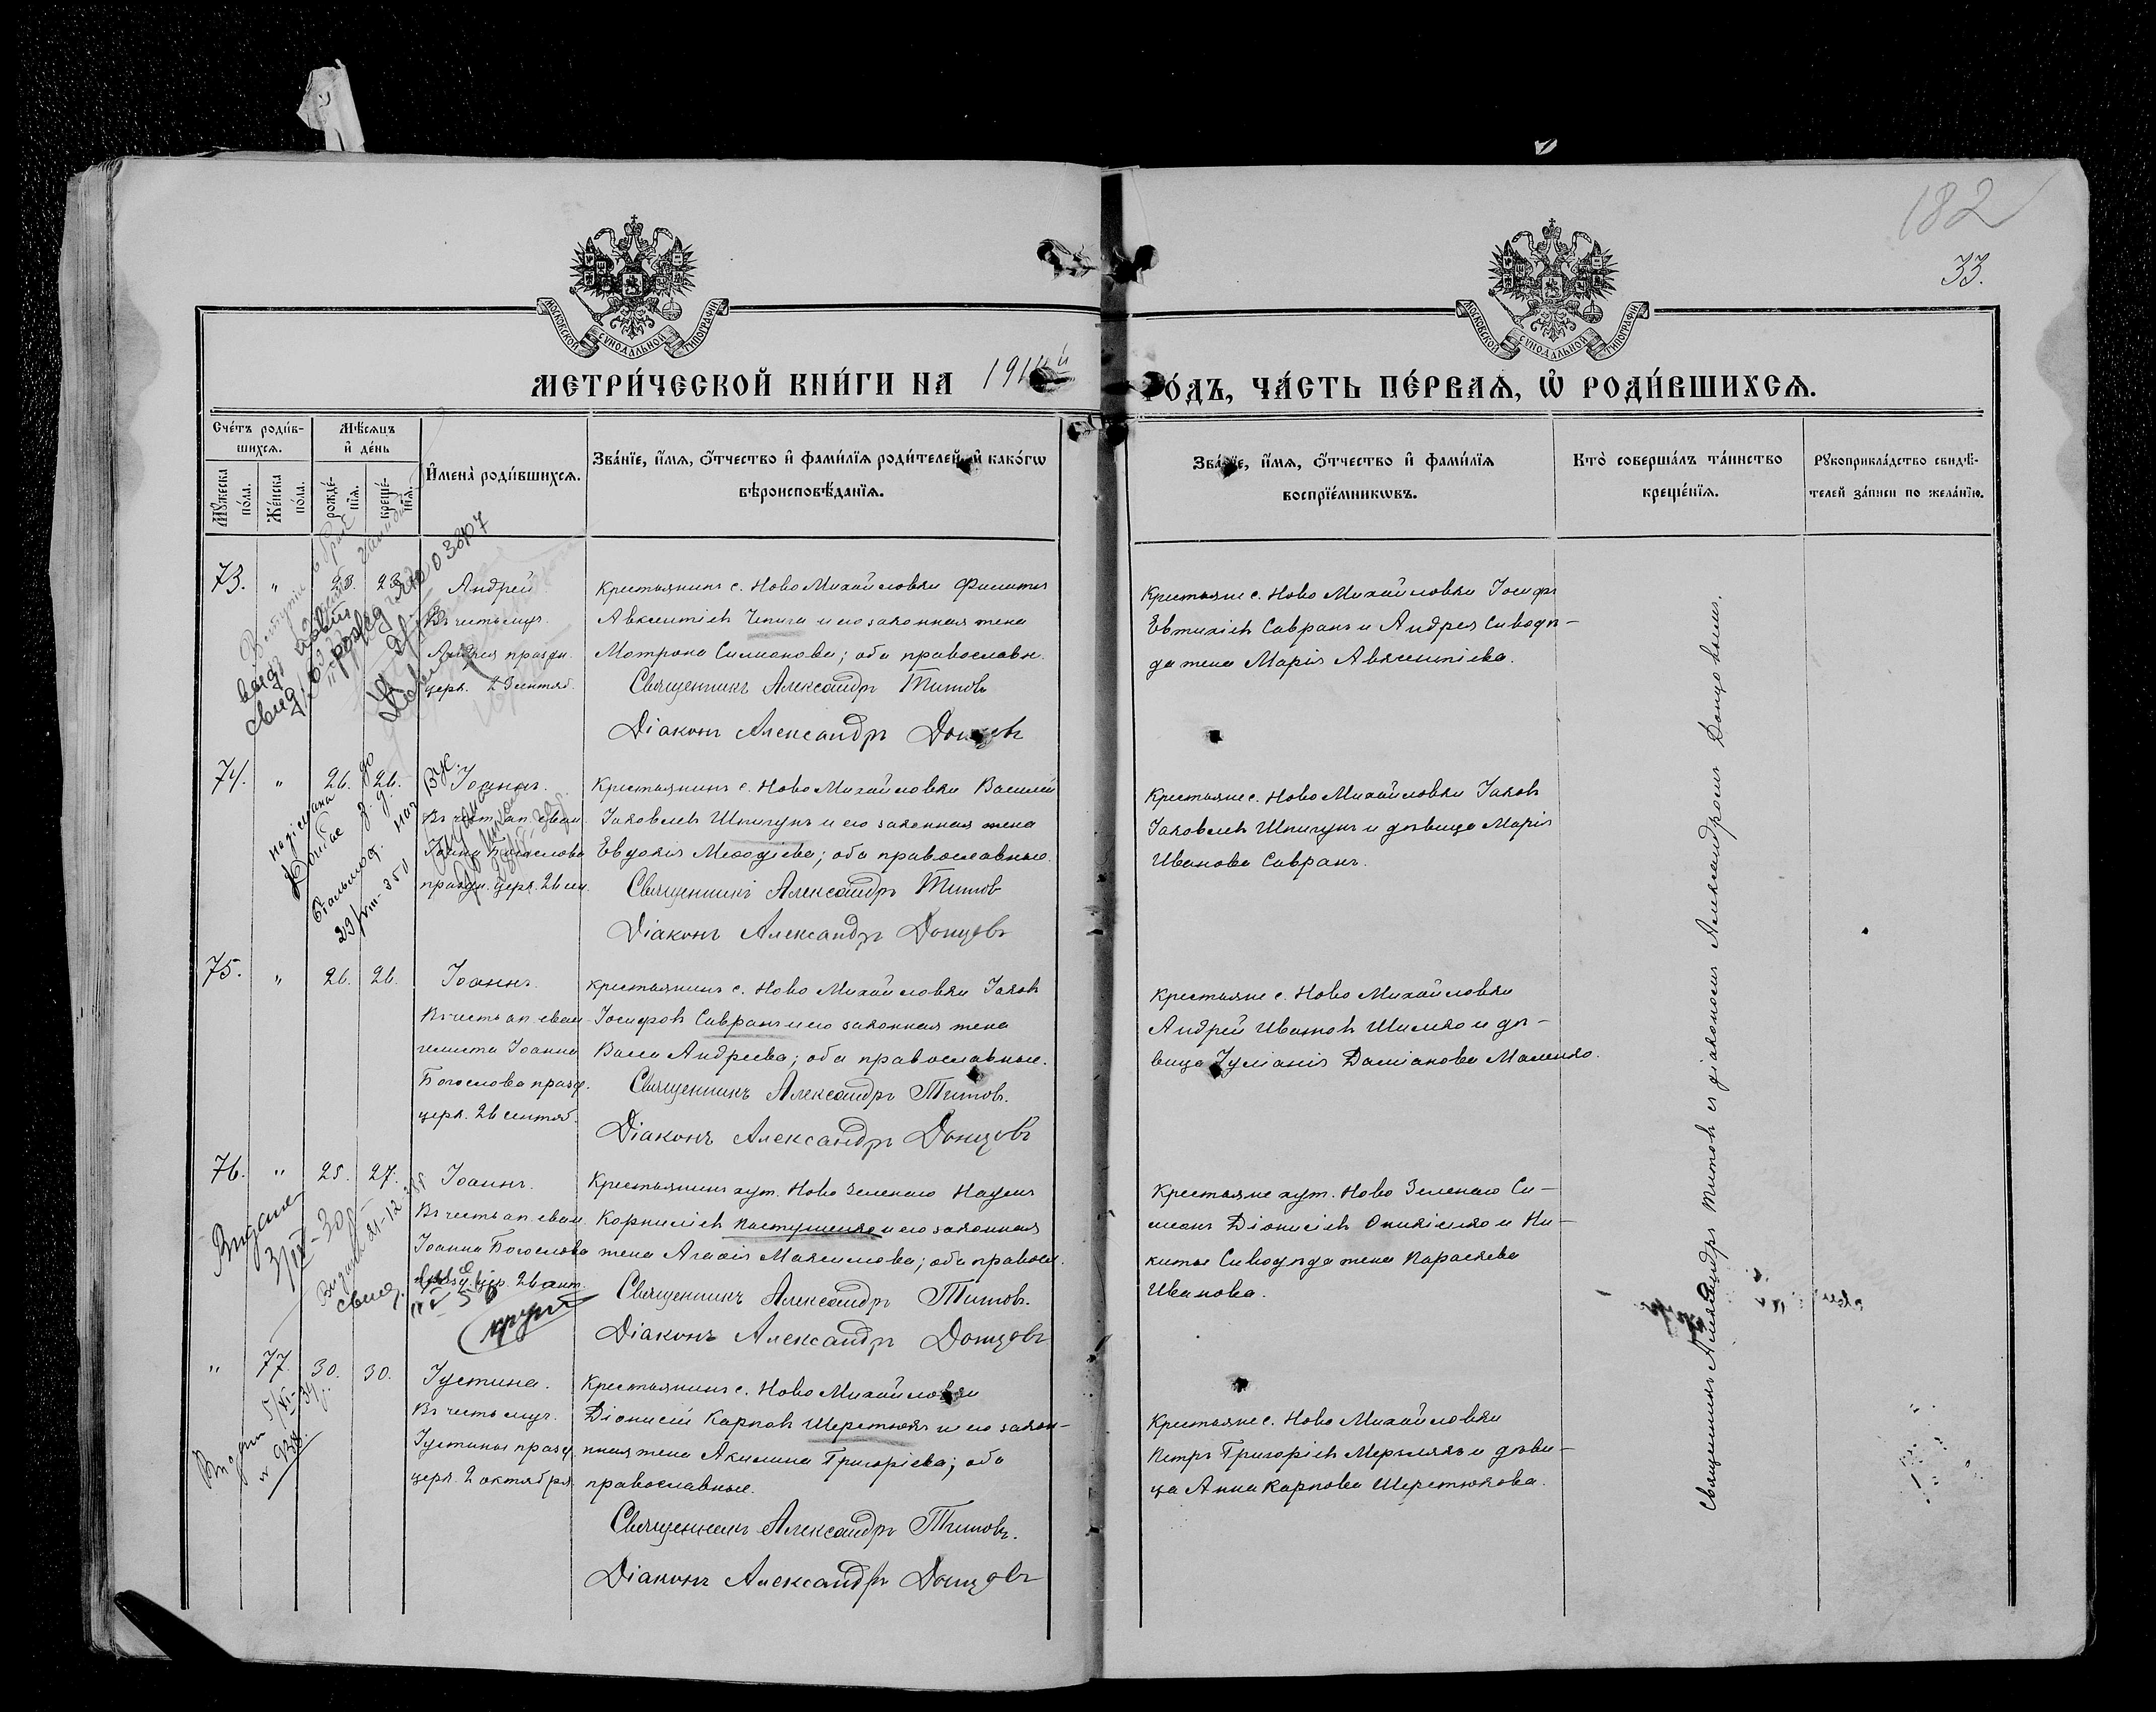 182
33.
МОСКОВСКОЙ СУНОДАЛЬНОЙ ТИПОГРАФІИ
МОСКОВСКОЙ СУНОДАЛЬНОЙ ТИПОГРАФІИ
МЕТРИ́ЧЕСКОЙ КНИ́ГИ НА 191
О́ДЪ, ЧА́СТЬ ПЕ́РВАѦ, Ѿ РОДИ́ВШИХСѦ.
Сче́тъ роди́в-
шихсѧ.
Мѣ́сѧцъ
и҆ де́нь
Мꙋ́жеска
по́ла.
Же́нска
по́ла.
рожде́-
нїѧ.
креще́-
нїѧ.
И҆мена̀ роди́вшихсѧ.
Зва́нїе, и҆́мѧ, ѻ҆́тчество и҆ фами́лїѧ роди́телей, и҆ како́гѡ
вѣроисповѣ́данїѧ.
Зва́нїе, и҆́мѧ, ѻ҆́тчество и҆ фами́лїѧ
воспрїе́мникѡвъ.
Кто̀ соверша́лъ та́инство
креще́нїѧ.
Рꙋкоприкла́дство свидѣ́-
телей за́писи по жела́нїю.
73. " 23. 23. Андрей
Въ честь муч.
Андрея праздн.
церк. 23 сентяб.
Крестьянинъ с. Ново Михайловки Филиппъ
Авксентіевъ Чепига и его законная жена
Матрона Симионова; оба православн.
Священникъ Александръ Титовъ
Діаконъ Александръ Донцовъ
Крестьяне с. Ново Михайловки Іосифъ
Евтихіевъ Савранъ и Андрея Сиводѣ-
да жена Марія Авксентіева.
74. " 26. 26. Іоаннъ.
Въ честь ап. еван.
Іоанна Богослова
праздн. церк. 26 сен.
Крестьянинъ с. Ново Михайловки Василій
Іаковлевъ Шпигунъ и его законная жена
Евдокія Меѳодіева; оба православные.
Священникъ Александръ Титовъ
Діаконъ Александръ Донцовъ
Крестьяне с. Ново Михайловки Іаковъ
Іаковлевъ Шпигунъ и дѣвица Марія
Иванова Савранъ.
75. " 26. 26. Іоаннъ.
Въ честь ап. еван-
гелиста Іоанна
Богослова празд.
церк. 26 сентяб.
Крестьянинъ с. Ново Михайловки Іаковъ
Іосифовъ Савранъ и его законная жена
Васса Андреева; оба православные.
Священникъ Александръ Титовъ.
Діаконъ Александръ Донцовъ
Крестьяне с. Ново Михайловки
Андрей Ивановъ Шимко и дѣ-
вица Іуліанія Даміанова Маленко.
76. " 25. 27. Іоаннъ.
Въ честь ап. еван.
Іоанна Богослова
празд. цер. 26 сент.
Крестьянинъ хут. Ново Зеленаго Наумъ
Корниліевъ Пастушенко и его законная
жена Агаѳія Максимова; оба правосл.
Священникъ Александръ Титовъ.
Діаконъ Александръ Донцовъ
Крестьяне хут. Ново Зеленаго Си-
меонъ Діонисіевъ Оникіенко и Ни-
киты Сиводѣда жена Параскева
Иванова.
" 77. 30. 30. Іустина.
Въ честь муч.
Іустины празд.
церк. 2 октября.
Крестьянинъ с. Ново Михайловки
Діонисій Карповъ Шерстюкъ и его закон-
ная жена Акилина Григоріева; оба
православные.
Священникъ Александръ Титовъ.
Діаконъ Александръ Донцовъ
Крестьяне с. Ново Михайловки
Петръ Григоріевъ Мерзлякъ и дѣви-
ца Анна Карпова Шерстюкова.
Священникъ Александръ Титовъ съ діакономъ Александромъ Донцовымъ.